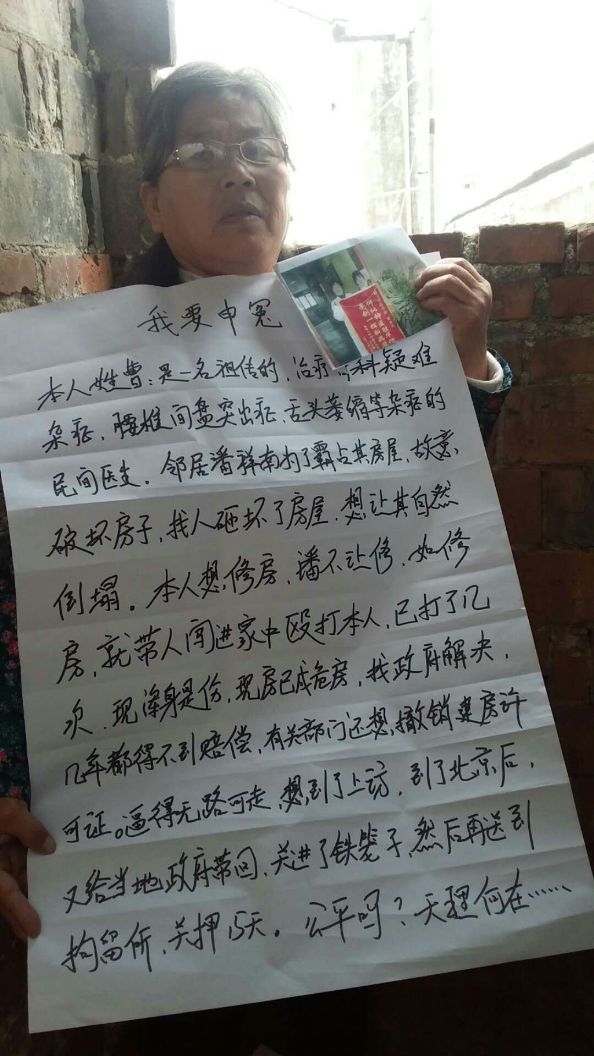 我要申冤
本人姓曹：是一名祖传的，治疗 科疑难
杂症，腰椎间盘突出症、舌头萎缩等杂症的
民间医生．邻居潘祥南为了霸占其房屋，故意，
破坏房子，找人砸坏了房屋．想让其自然
倒塌。本人想修房，潘不让修．如修
房，就带人闯进家中殴打本人，已打了几
次．现浑身是伤，现房已成危房，找政府解决，
几年都得不到赔偿，有关部门还想撤销建房许
可证。逼得无路可走，想到了上访，到了北京后，
又给当地政府带回，关进了铁笼子，然后再送到
拘留所，关押15天。公平吗？天理何在……